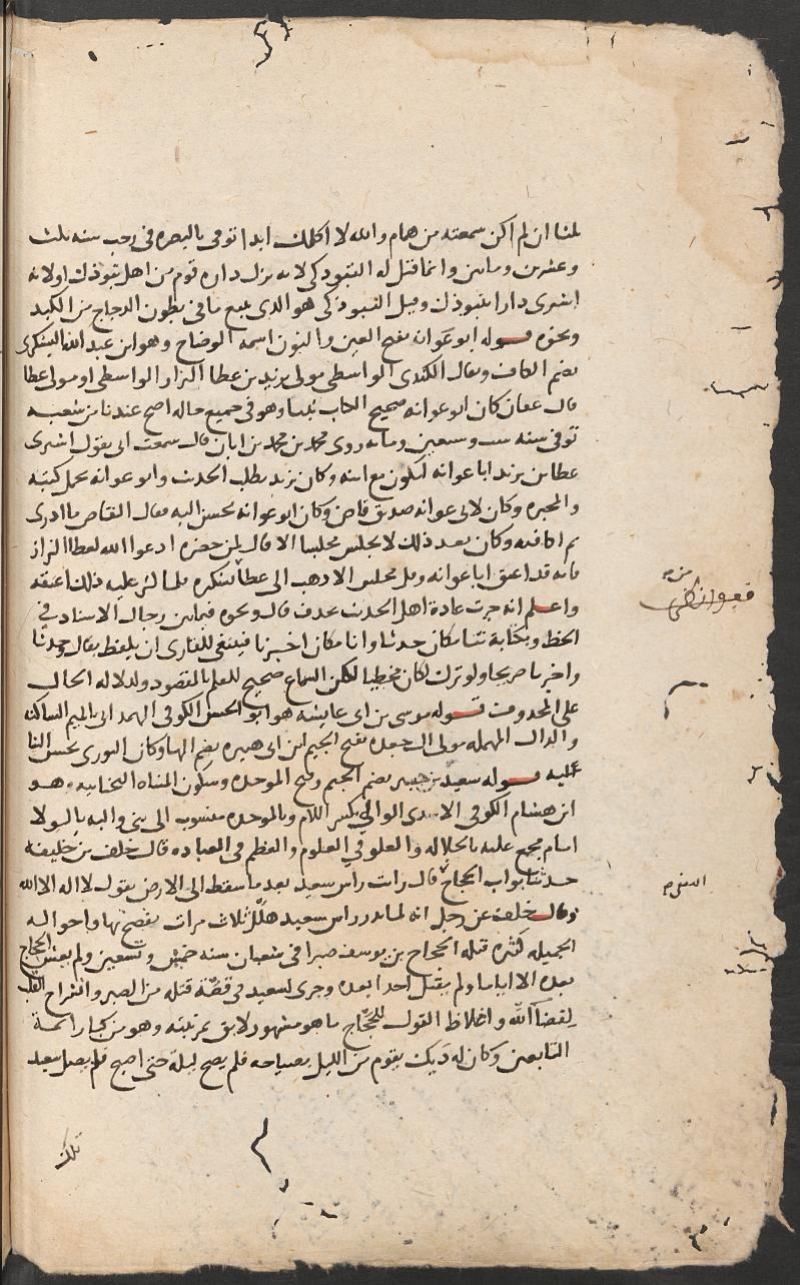 لمنا ان لم اكن سمعته من همام والله لا اكلمك ابدا توفي بالبصرة في رجب سنه ثلث
وعشرين وماىىن وانما قىل له التبوذكي لانه نزل داره قوم من اهل تبوذك او لانه
اشترى دارا بتبوذك وقيل التبوذكي هو الذي يبيع ما في بطون الدجاج من الكبد
ونحوه قوله ابو عوانه بفتح العين والنون اسمه الوضاح وهو ابن عبد الله اليشكري
بضم الكاف ويقال الكندي الواسطي مولى يزيد بن عطا البزار الواسطي او مولى عطا
قال عفان كان ابو عوانه صحيح الكتاب ثبتا وهو في جميع حاله اصح عندنا من شعبه
توفي سنه ست وسبعين ومائه روى محمد بن محمد بن ابان قال سمعت ابي يقول اشترى
عطا بن يزيد ابا عوانه ليكون مع ابنه وكان يزيد يطلب الحديث وابو عوانه يحمل كتبه
والمحبره وكان لابي عوانه صديق قاص وكان ابو عوانه يحسن اليه فقال القاص ما ادري
بم اكافيه وكان بعد ذلك لا يجلس مجلسا الا قال لمن حضره ادعوا الله لعطا البزاز
فانه قد اعتق ابا عوانه وقل مجلس الا ذهب الى عطا يشكره فلما كثر عليه ذلك اعتقه
واعلم انه جرت عادة اهل الحديث بحذف قال ونحوه فيما بين رجال الاسناد في
الخط وبكتابة ثنا مكان حدثنا وانا مكان اخبرنا فينبغي للقاري ان يلفظ بقال وحدثنا
واخبرنا صريحا ولو ترك لكان مخطيا لكن السماع صحيح للعلم بالمقصود ولدلاله الحال
على المحذوف قوله موسى بن ابي عايشه هو ابو الحسن الكوفي الهمداني بالميم الساكنه
والدال المهمله مولى ال جعده بفتح الجيم ابن ابي هبيره بضم الها وكان الثوري يحسن الثنا
عليه قوله سعيد بن جبير بضم الجيم وفتح الموحده وسكون المثناه التحتانيه هو
ابن هشام الكوفي الاسدي الوالبي بكسر اللام وبالموحده منسوب الى بني والبه بالولا
امام مجمع عليه بالجلاله والعلو في العلوم والعظم في العباده قال خلف بن خليفه
حدثنا بواب الحجاج قال رايت راس سعيد بعد ما سقط الى الارض يقول لا اله الا الله
وقال خلف عن رجل انه لما ندر راس سعيد هلّل ثلاث مرات يفصح بها واحواله
الجميله كثره قتله الحجاج بن يوسف صبرا في شعبان سنه خمس وتسعين ولم يعش الحجاج
بعده الا اياما ولم يقتل احدا بعده وجرى لسعيد في قصّة قتله من الصبر وانشراح القلب
لقضا الله واغلاظ القول للحجّاج ما هو مشهور لايق بمرتبته وهو من كبار ائمة
التابعين وكان له ديك يقوم من الليل بصياحه فلم يصح ليلة حتى اصبح فلم يصل سعيد
تلك